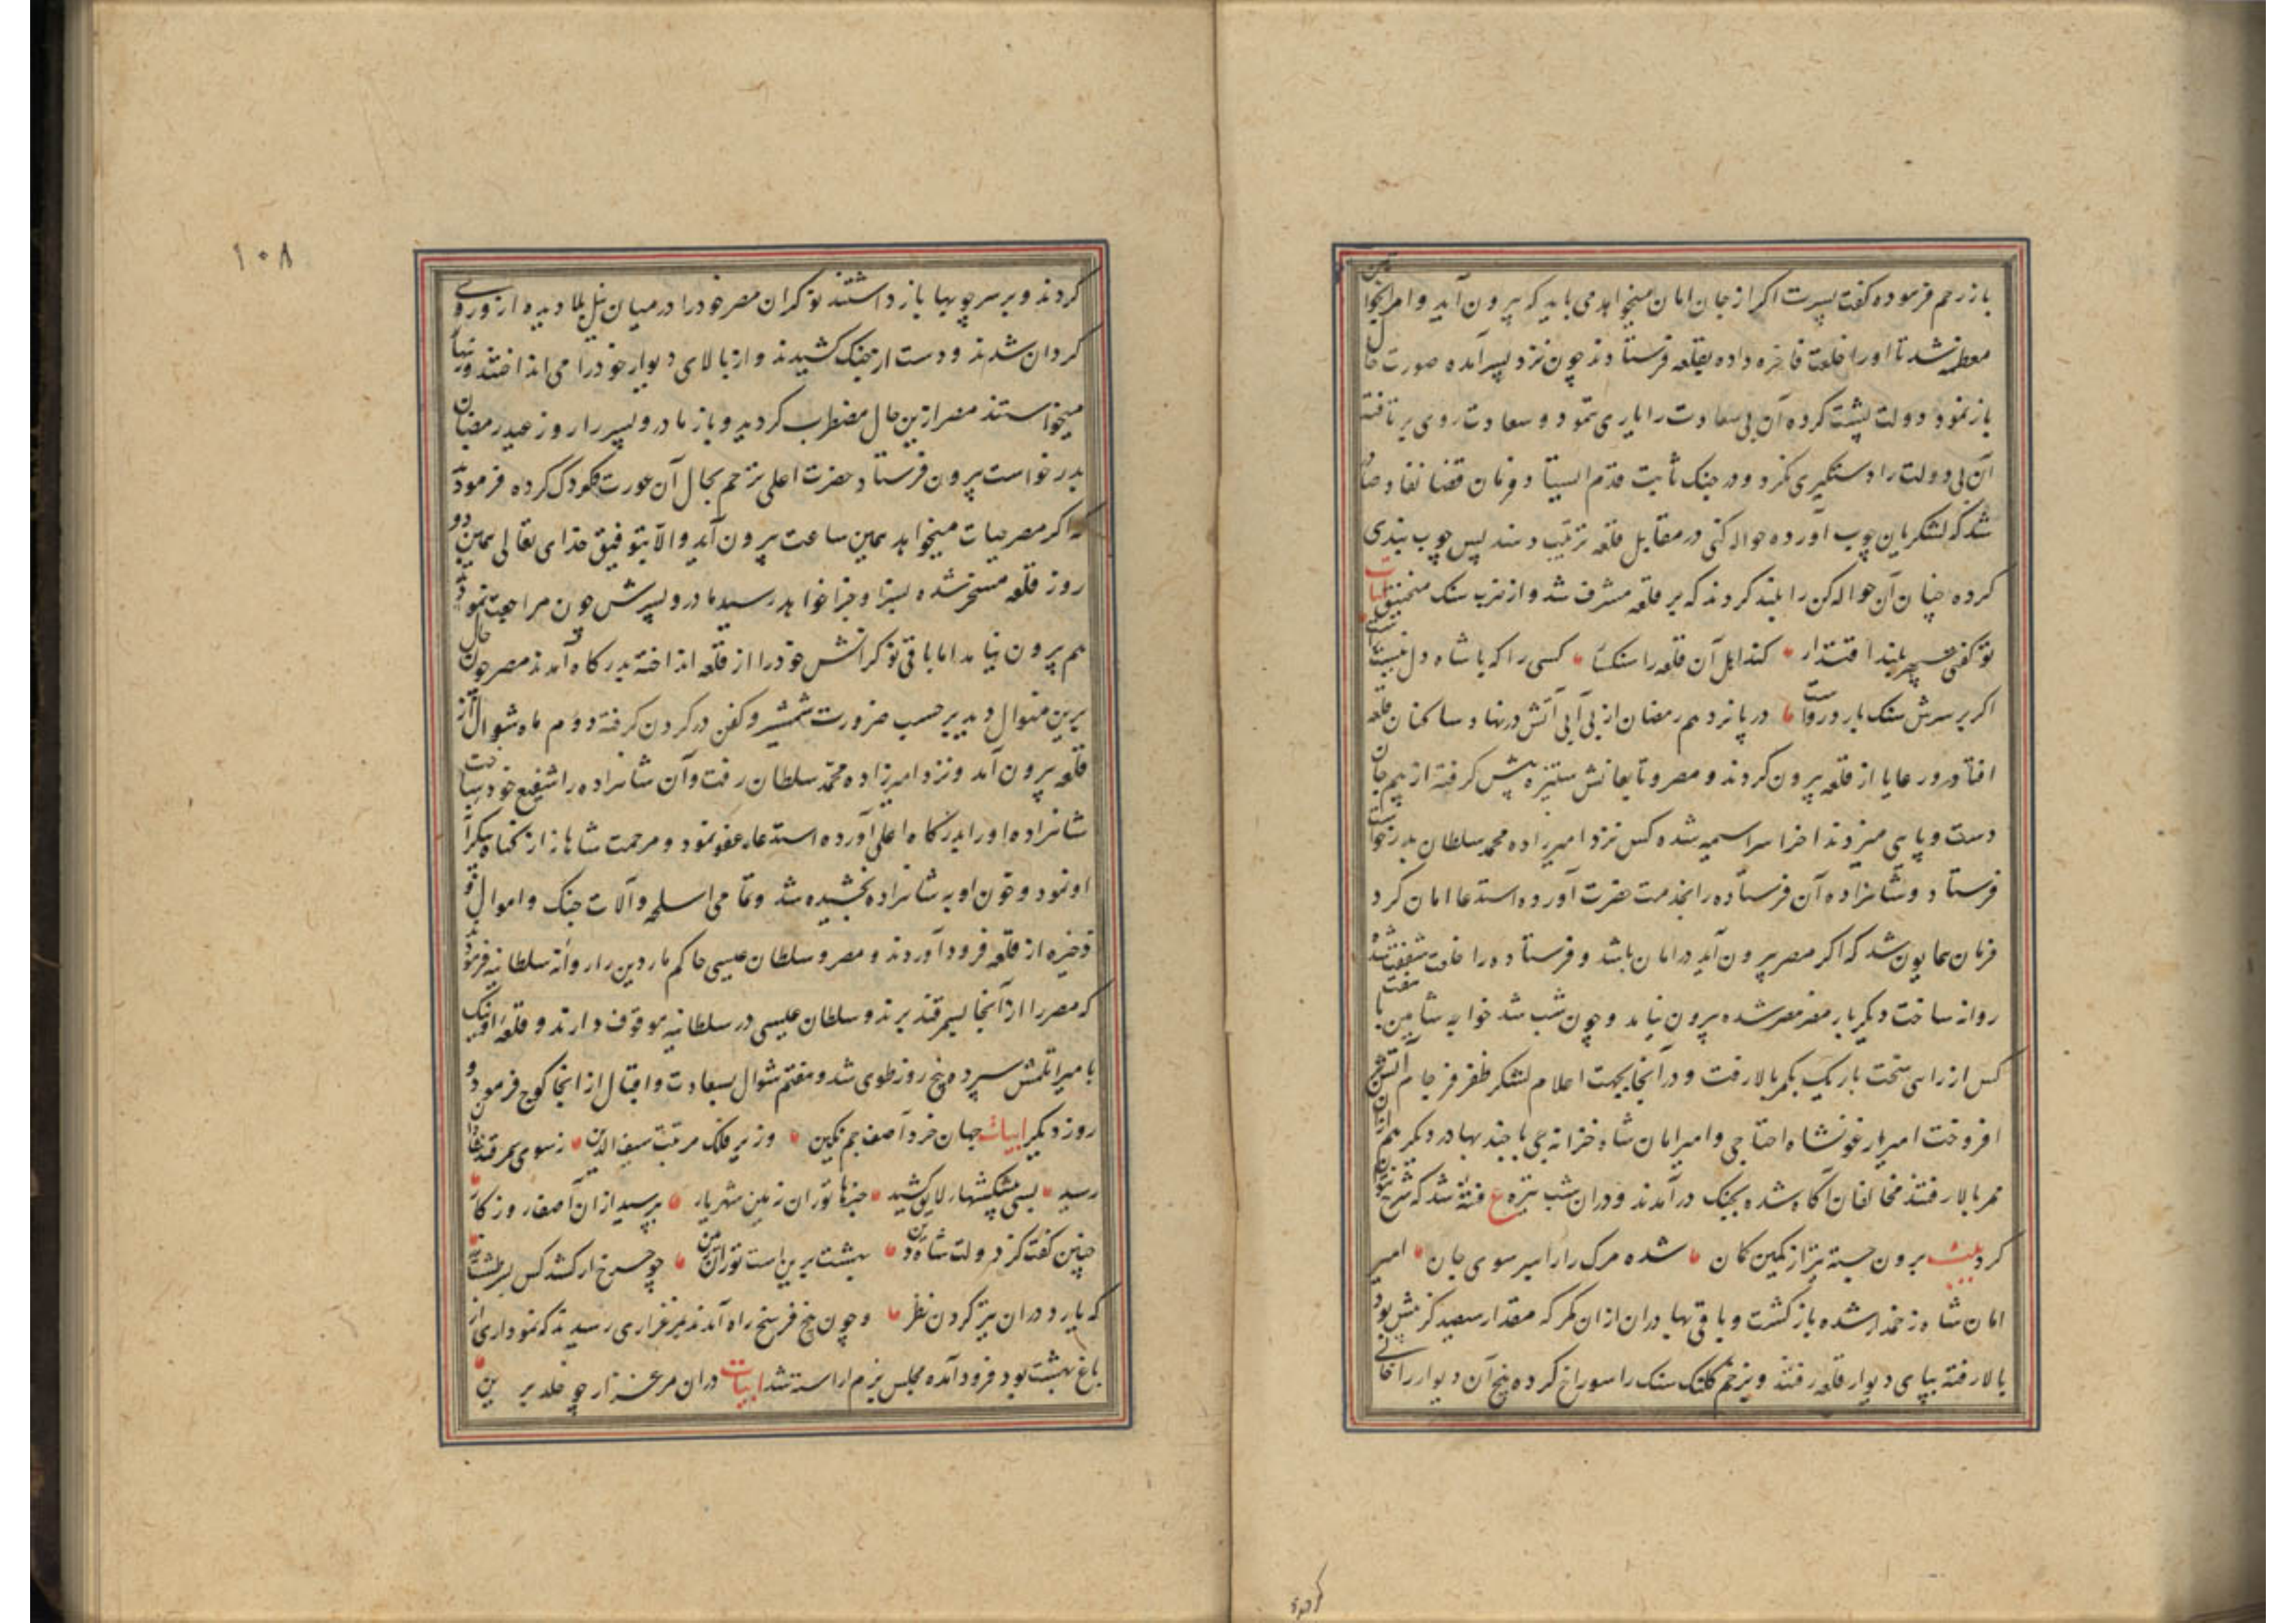 باز رحم فرموده گفت پسرت اگر از جان امان میخواهد می باید که بیرون آید و امرا بخواتین
معظمه شد تا او را خلعت فاخره داده بقلعه فرستادند چون نزد پسر آمده صورت حال
باز نمود دولت پشت کرده آن بی سعادت را یاری ننمود و سعادت روی بر تافته
آن بی دولت را دستگیری نکرد و در جنک ثابت قدم ایستاد و فرمان قضا نفاد صادر
شد که لشکریان چوب آورده حواله کنی در مقابل قلعه ترتیب دهند پس چوب بندی
کرده چنان آن حواله کن را بلند کردند که بر قلعه مشرف شد و از ضرب سنک منجنیق ابیات
تو کفتی سپهر بلند اقتدار کند اهل آن قلعه را سنکسار کسی را که با شاه دل نیست راست
اکر بر سرش سنک بارد رواست در پانزدهم رمضان از بی آبی آتش در نهاد ساکنان قلعه
افتاد و رعایا از قلعه بیرون کردند و مصر و تابعانش ستیزه پیش کرفته از بیم جان
دست و پای میزدند اخر سراسمیه شده کس نزد امیرزاده محمد سلطان بدرخواست
فرستاد و شاهزاده آن فرستاده را بخدمت حضرت آورده استدعا امان کرد
فرمان همایون شد که اکر مصر بیرون آید در امان باشد و فرستاده را خلعت شفقت شده
روانه ساخت دیکر بار مصر مصر شده بیرون نیامد و چون شب شد خواجه شاهین با هفت
کس از راهی سخت باریک بکمر بالا رفت و در آنجا بجهت اعلام لشکر ظفر فرجام آتش
افروخت امیر ارغونشاه اختاجی و امیر امان شاه خزانه جی با چند بهادر دیکر هم از ان
ممر بالا رفتند مخالفان آکاه شده بجنک در آمدند و در ان شب تیره ع فتنه شد که شرح نتوان
کرد بیت برون جسته تیر از کمین کمان شده مرک را راهبر سوی جان امیر
امان شاه زخمدار شده باز کشت و باقی بهادران از ان کمر که مقدار سیصد کز پیش بود
بالا رفته بپای دیوار قلعه رفتند و بزخم کلنک سنک را سوراخ کرده بیخ آن دیوار را خالی
کردند
۱۰۸
کردند و بر سر چوبها باز داشتند نوکران مصر خود را در میان نیل بلا دیده از و روی
کردان شدند و دست از جنک کشیدند و از بالای دیوار خود را می انداختند و زنهار
میخواستند مصر ازین حال مضطرب کردید و باز مادر و پسر را روز عید رمضان
بدرخواست بیرون فرستاد حضرت اعلی ترحم بحال آن عورت و کودک کرده فرمود
که اکر مصر حیات میخواهد همین ساعت بیرون آید و الا بتوفیق خدای تعالی همین دو
روز قلعه مسخر شده بسزا و جزا خواهد رسید مادر و پسرش چون مراجعت نمودند
هم بیرون نیامد اما باقی نوکرانش خود را از قلعه انداخته بدرکاه آمدند مصر چون حال
برین منوال دید بر حسب ضرورت شمشیر و کفن در کردن کرفته دوم ماه شوال از
قلعه بیرون آمد و نزد امیرزاده محمد سلطان رفت و آن شاهزاده را شفیع خود ساخت
شاهزاده او را بدرکاه اعلی آورده استدعا عفو نمود و مرحمت شاهانه از کناه بیکران
او نمود و خون او به شاهزاده بخشیده شد و تمامی اسلحه و آلات جنک و اموال و
ذخیره از قلعه فرود آوردند و مصر و سلطان عیسی حاکم ماردین را روانه سلطانیه فرمودند
که مصر را از آنجا بسمرقند برند و سلطان عیسی در سلطانیه موقوف دارند و قلعه اونیک
بامیر اتلمش سپرد و پنج روز طوی شد و هفتم شوال بسعادت و اقبال از انجا کوچ فرمود و
روز دیکر ابیات جهان خرد آصف جم نکین وزیر فلک مرتبت سیف الدین ز سوی سمرقند
رسید بسی پیشکشهار لایق کشید خبرها توران زمین شهریار بپرسید از ان آصف روزکار
چنین کفت کز دولت شاه دین بهشت برین است توران زمین
که یارد در ان تیز کردن نظر و چون پنج فرسخ راه آمدند بمرغزاری رسیدند که نموداری از
باغ بهشت بود فرود آمده مجلس بزم اراسته شد ابیات در ان مرغزار چو خلد برین